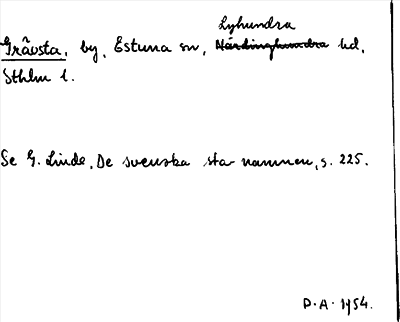 Gråvsta, by, Estuna sn, Lyhundra Närdinghundra hd,
Sthlm l.
Se G. Linde, De svenska sta-namnen, s. 225.
D.A. 1954.